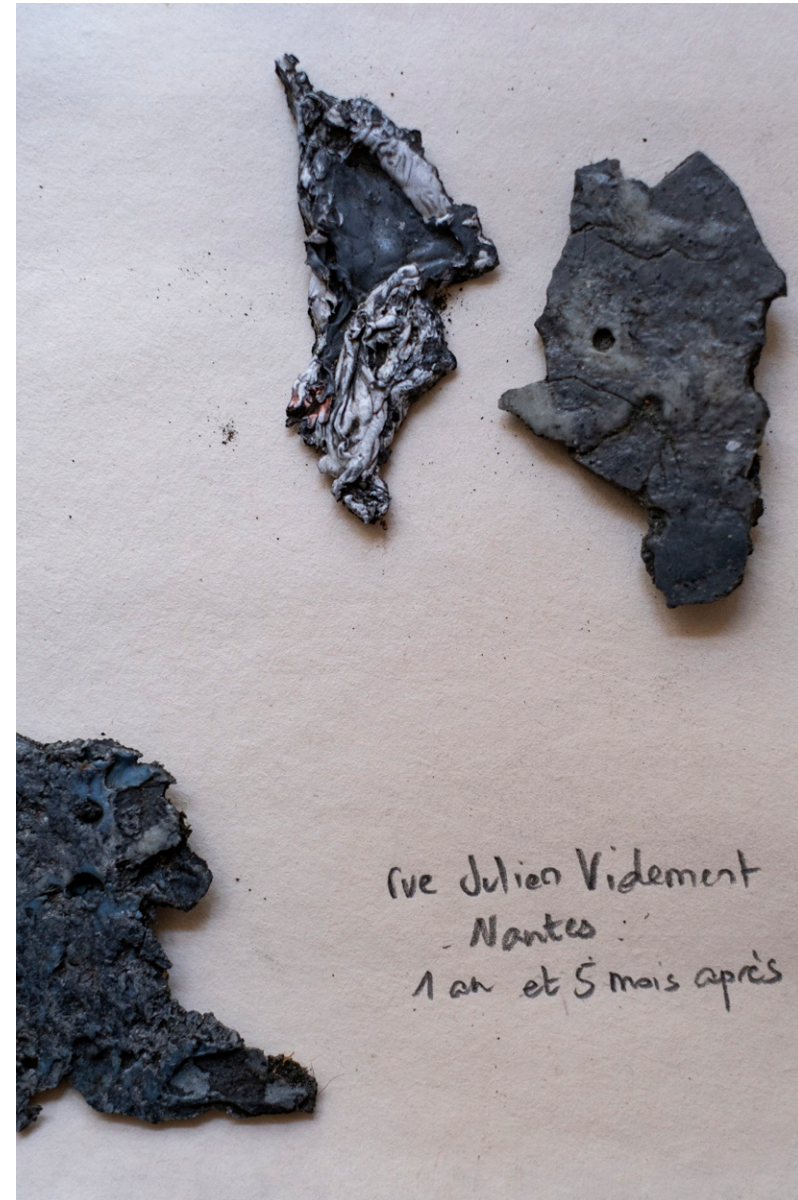 rue Julien Videment
Nantes
1 an et 5 mois après